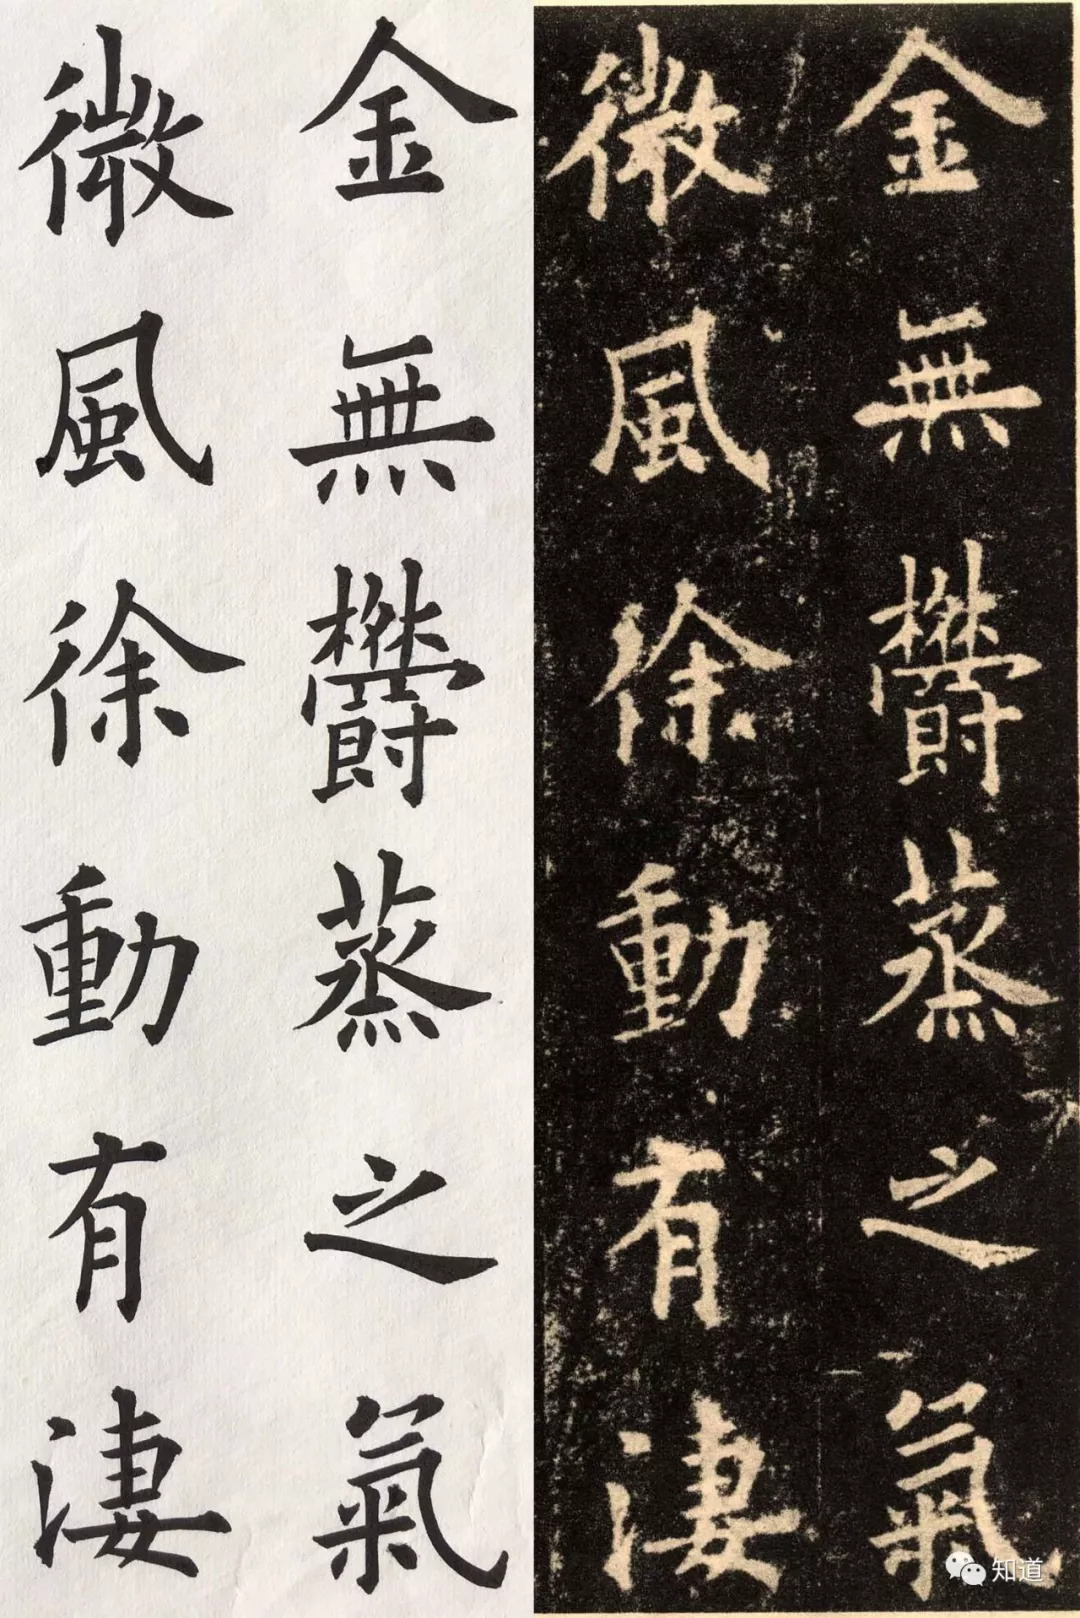 金無欝蒸之氣
微風徐動有淒
金無欝蒸之氣
微風徐動有淒
知道